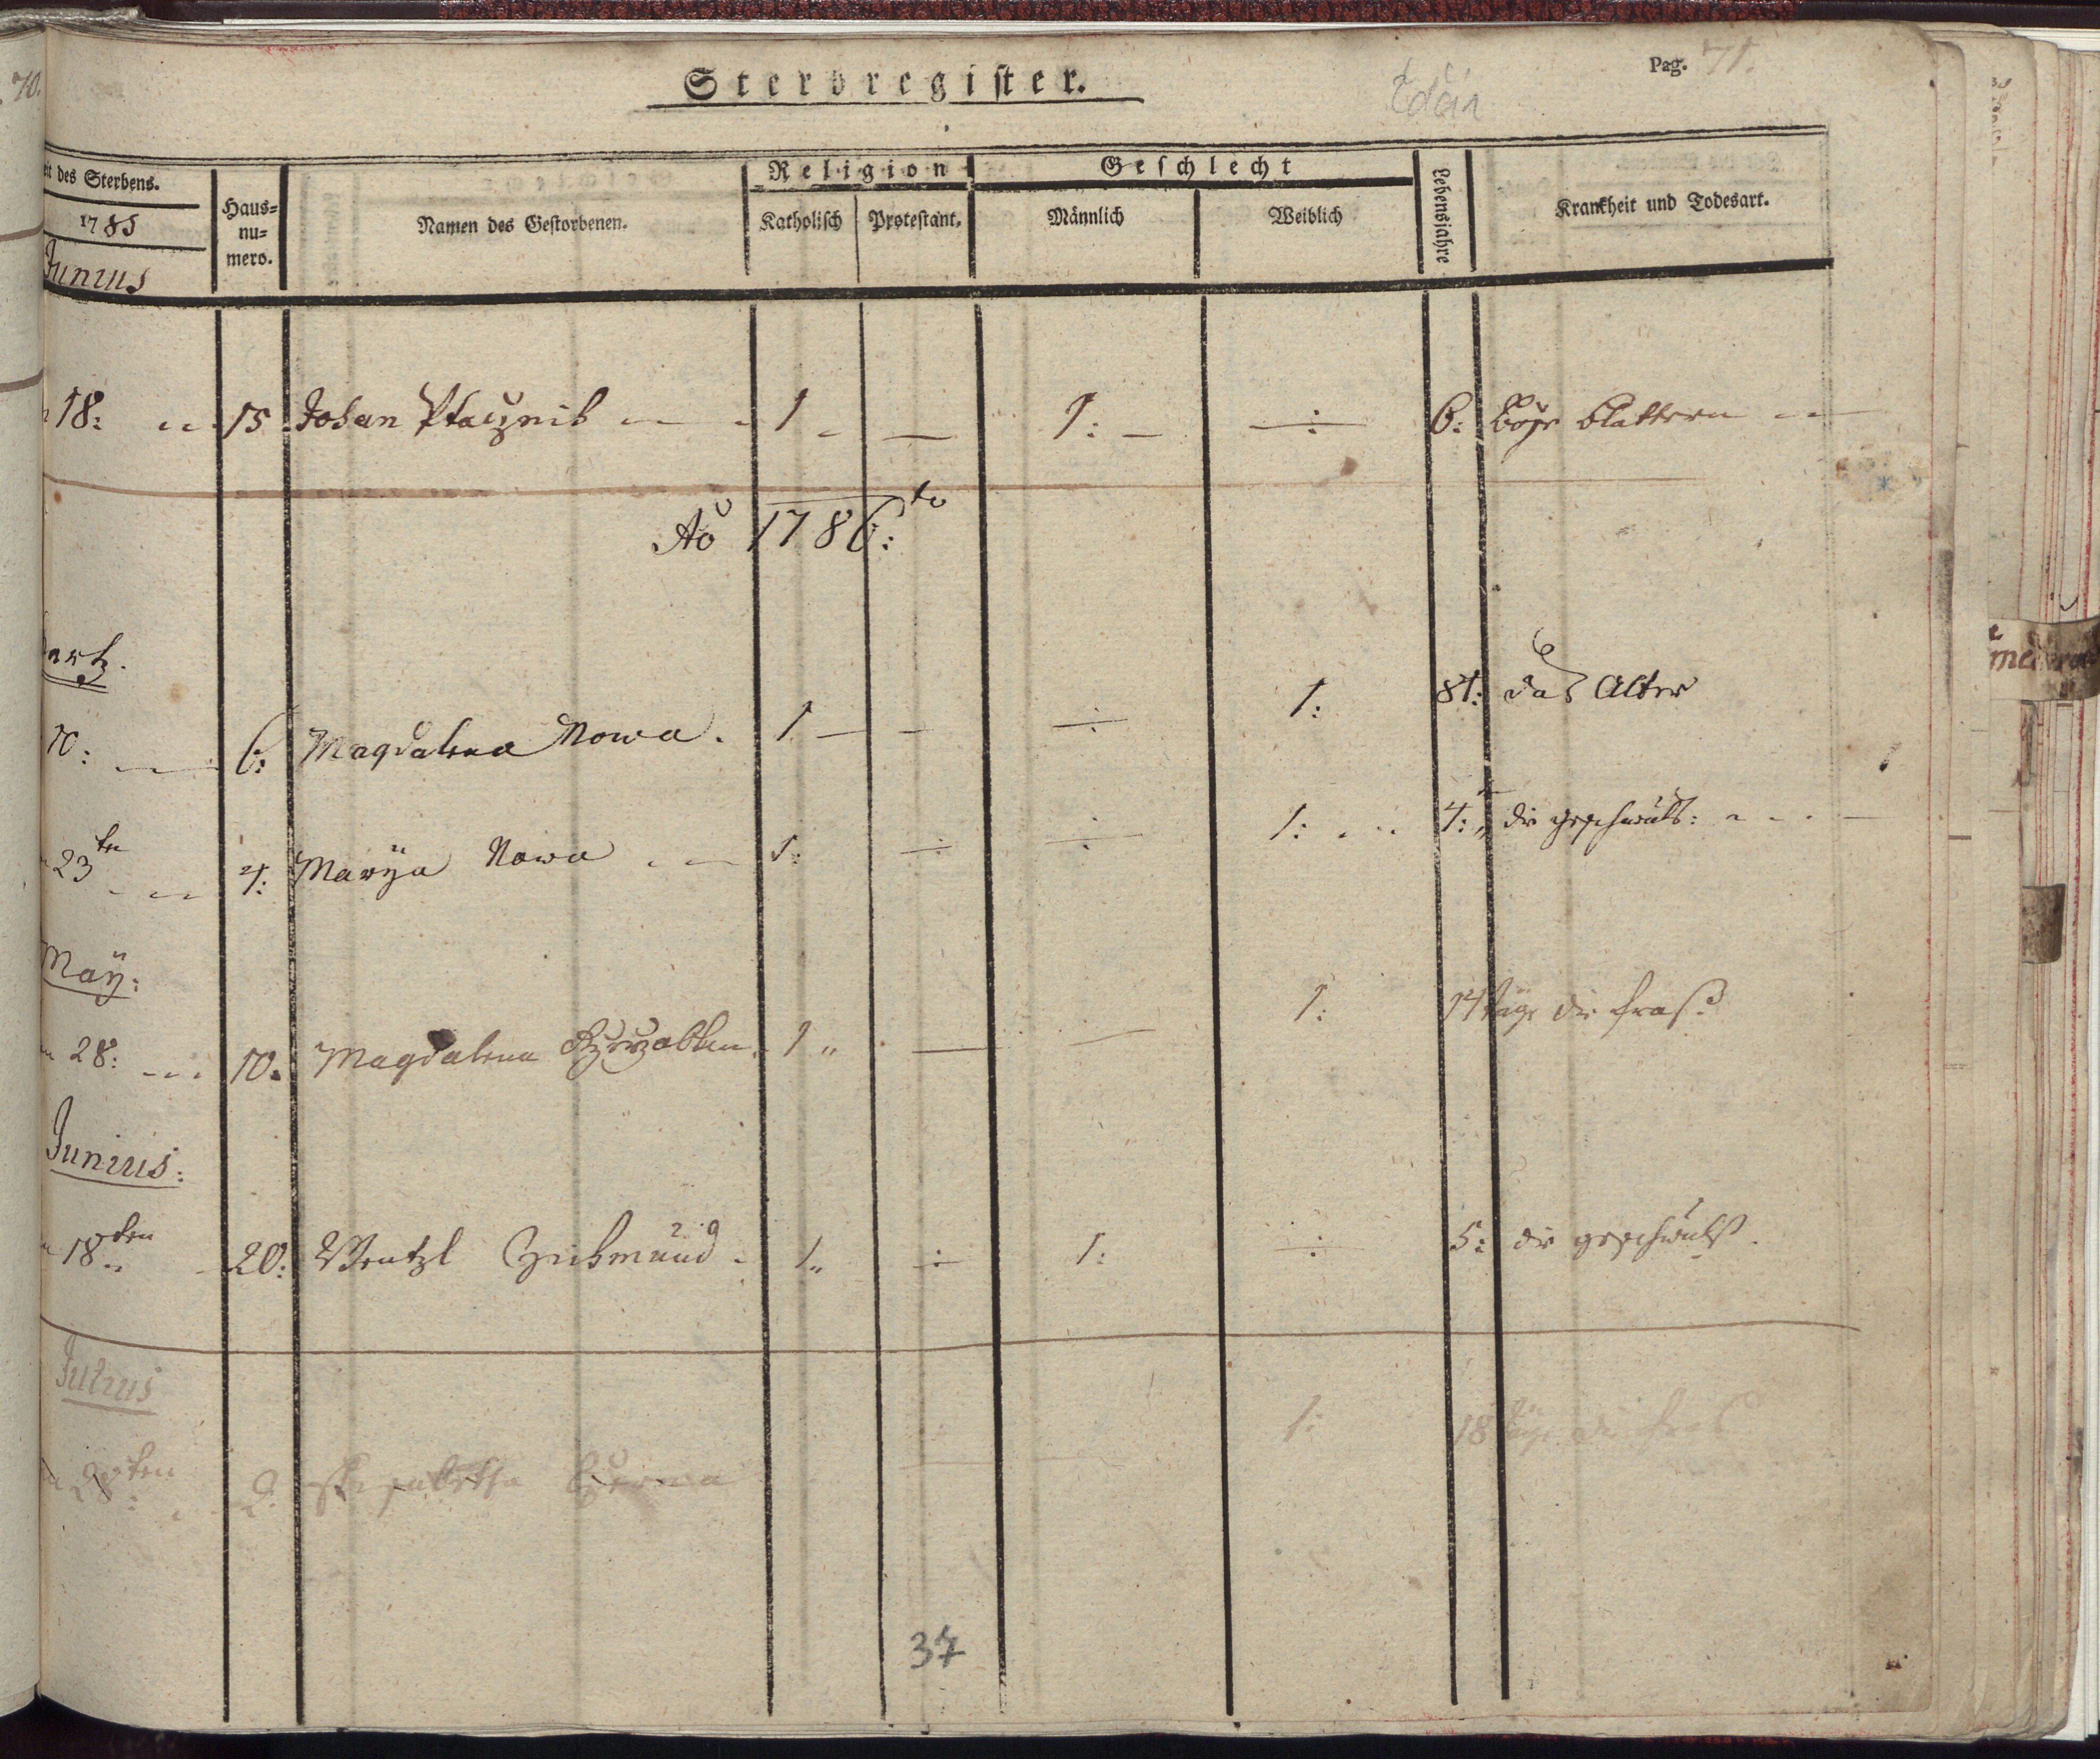 70.
Sterbregister.
Pag. 71.
Ždár
eit des Sterbens.
1785
Junius
Haus=
nu=
mero.
Namen des Gestorbenen.
Religion
Katholisch
Protestant.
Geschlecht
Männlich
Weiblich
Lebensjahre
Krankheit und Todesart.
18: 15 Johan Ptacznik 1 — 1: — ÷ 6: böse blattern
Ao 1786:to
artz.
10: 6: Magdalena Nowa. 1 — ÷ 1: 81: das Alter
23ten 4: Marÿa Nowa 1: ÷ ÷ 1: 4: die geschwulst:
Maÿ:
28: 10. Magdalena 1 — — 1: 14 täge die fraß.
Junius:
18ten 20: Wentzl Zickmund 1 ÷ 1: ÷ 5: die geschwulst.
Julius
2. 1: 18 täge die fras
37